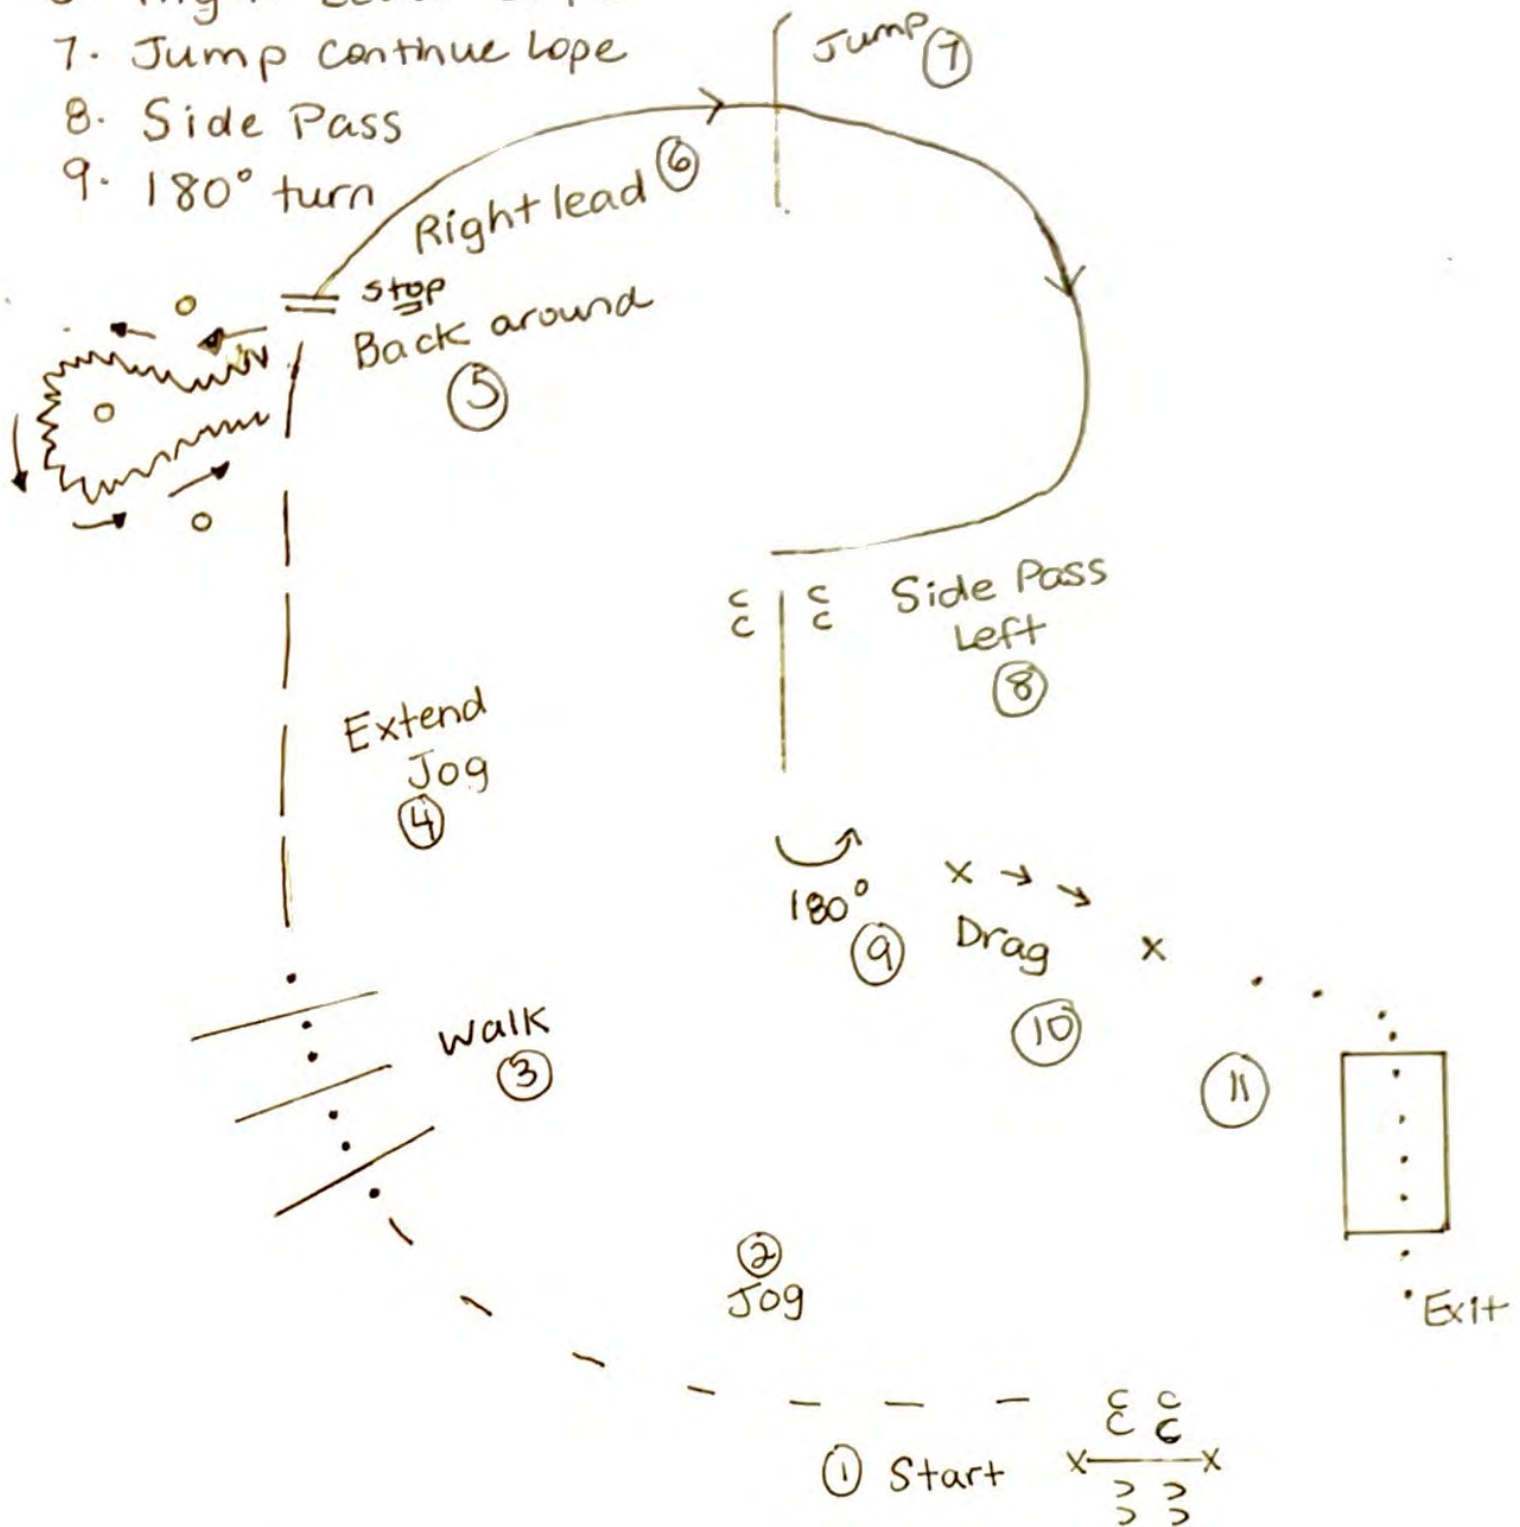 7. Jump continue Lope
8. Side Pass
9. 180° turn
Jump 7
Right lead 6
stop
Back around
5
Side Pass
Left
8
Extend
Jog
4
180°
9
x x
Drag
10
Walk
3
11
2
Jog
Exit
1 Start
x x